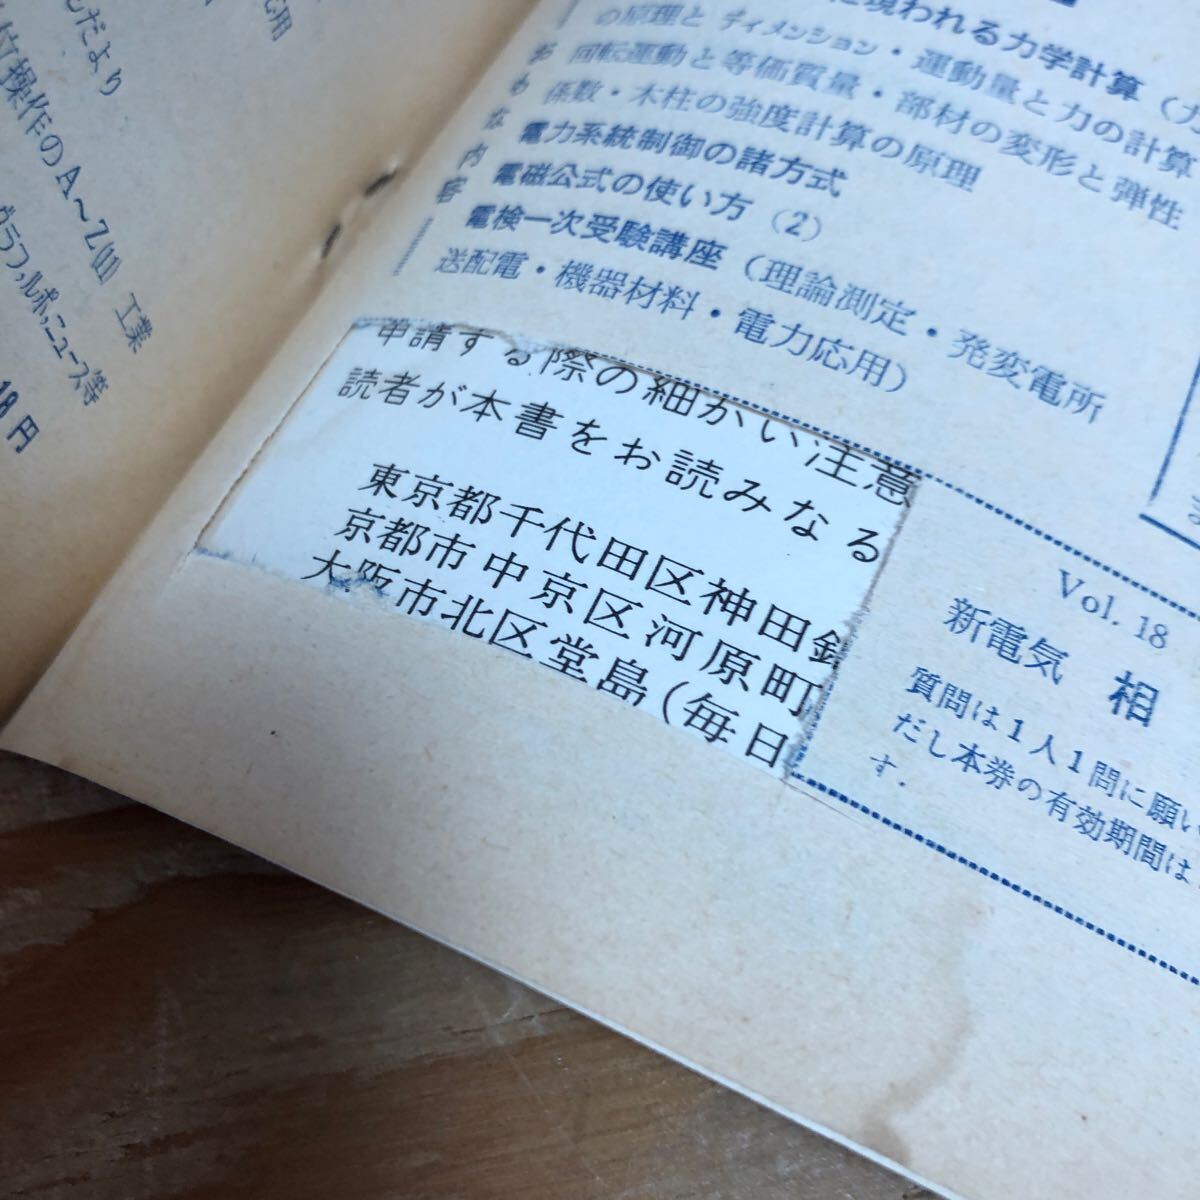 に現われる力学計算
の原理とディメンション・運動量と力の計算
回転運動と等価質量・部材の変形と弾性
係数・木柱の強度計算の原理
電力系統制御の諸方式
電磁公式の使い方 (2)
電検一次受験講座 (理論測定・発変電所
送配電・機器材料・電力応用)
おもな内容
申請する際の細かい注意
読者が本書をお読みなる
東京都千代田区神田錦
京都市中京区河原町
大阪市北区堂島(毎日
Vol. 18
新電気 相
質問は1人1問に願い
だし本券の有効期間は
す.
だより
操作のA~Z
工業
グラフ,ルポ,ニュース等
18円